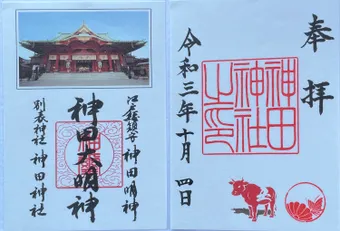 奉拝
神田
神社
之印
令和三年十月四日
江戸総鎮守 神田明神
神田大明神
別表神社 神田神社